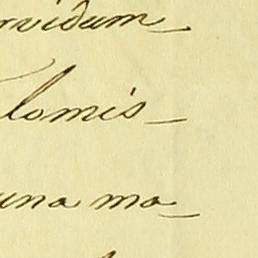 rvidum_
lomis_
una ma_